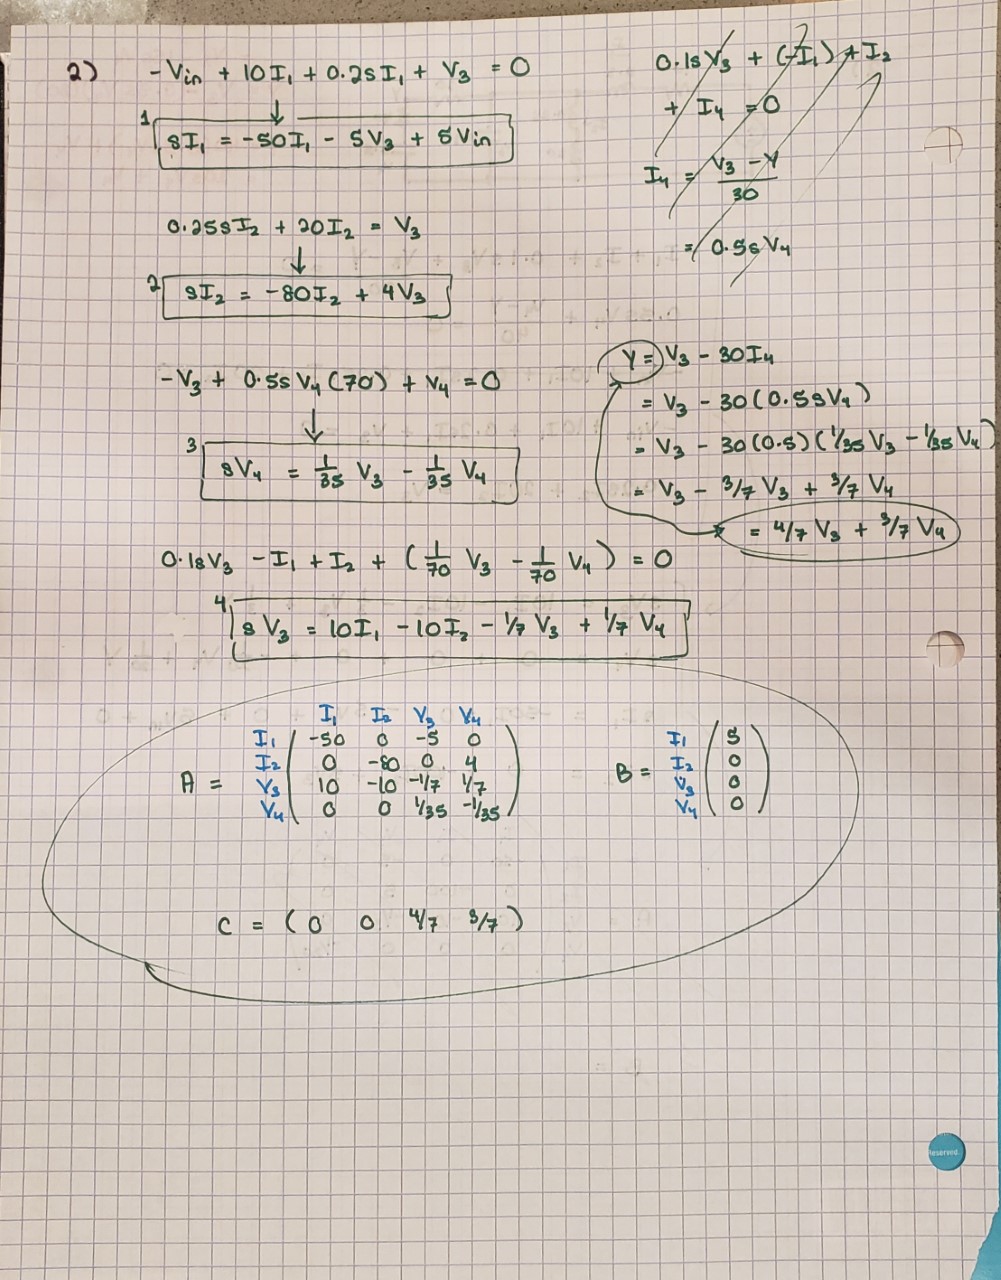 2) -Vin + 10I₁ + 0.2sI₁ + V₃ = 0
↓
1 sI₁ = -50I₁ - 5V₃ + 5Vin
0.25sI₂ + 20I₂ = V₃
↓
2 sI₂ = -80I₂ + 4V₃
-V₃ + 0.5sV₄(70) + V₄ = 0
↓
3 sV₄ = 1/35 V₃ - 1/35 V₄
0.1sV₃ - I₁ + I₂ + (1/70 V₃ - 1/70 V₄) = 0
4 sV₃ = 10I₁ - 10I₂ - 1/7 V₃ + 1/7 V₄
0.1sV₃ + (-I₁) + I₂
+ I₄ = 0
I₄ = V₃ - Y / 30
= 0.5sV₄
Y = V₃ - 30I₄
= V₃ - 30(0.5sV₄)
= V₃ - 30(0.5)(1/35 V₃ - 1/35 V₄)
= V₃ - 3/7 V₃ + 3/7 V₄
= 4/7 V₃ + 3/7 V₄
I₁ I₂ V₃ V₄
I₁ -50 0 -5 0
I₂ 0 -80 0 4
A =
V₃ 10 -10 -1/7 1/7
V₄ 0 0 1/35 -1/35
B =
I₁ 5
I₂ 0
V₃ 0
V₄ 0
C = (0 0 4/7 3/7)
Reserved.